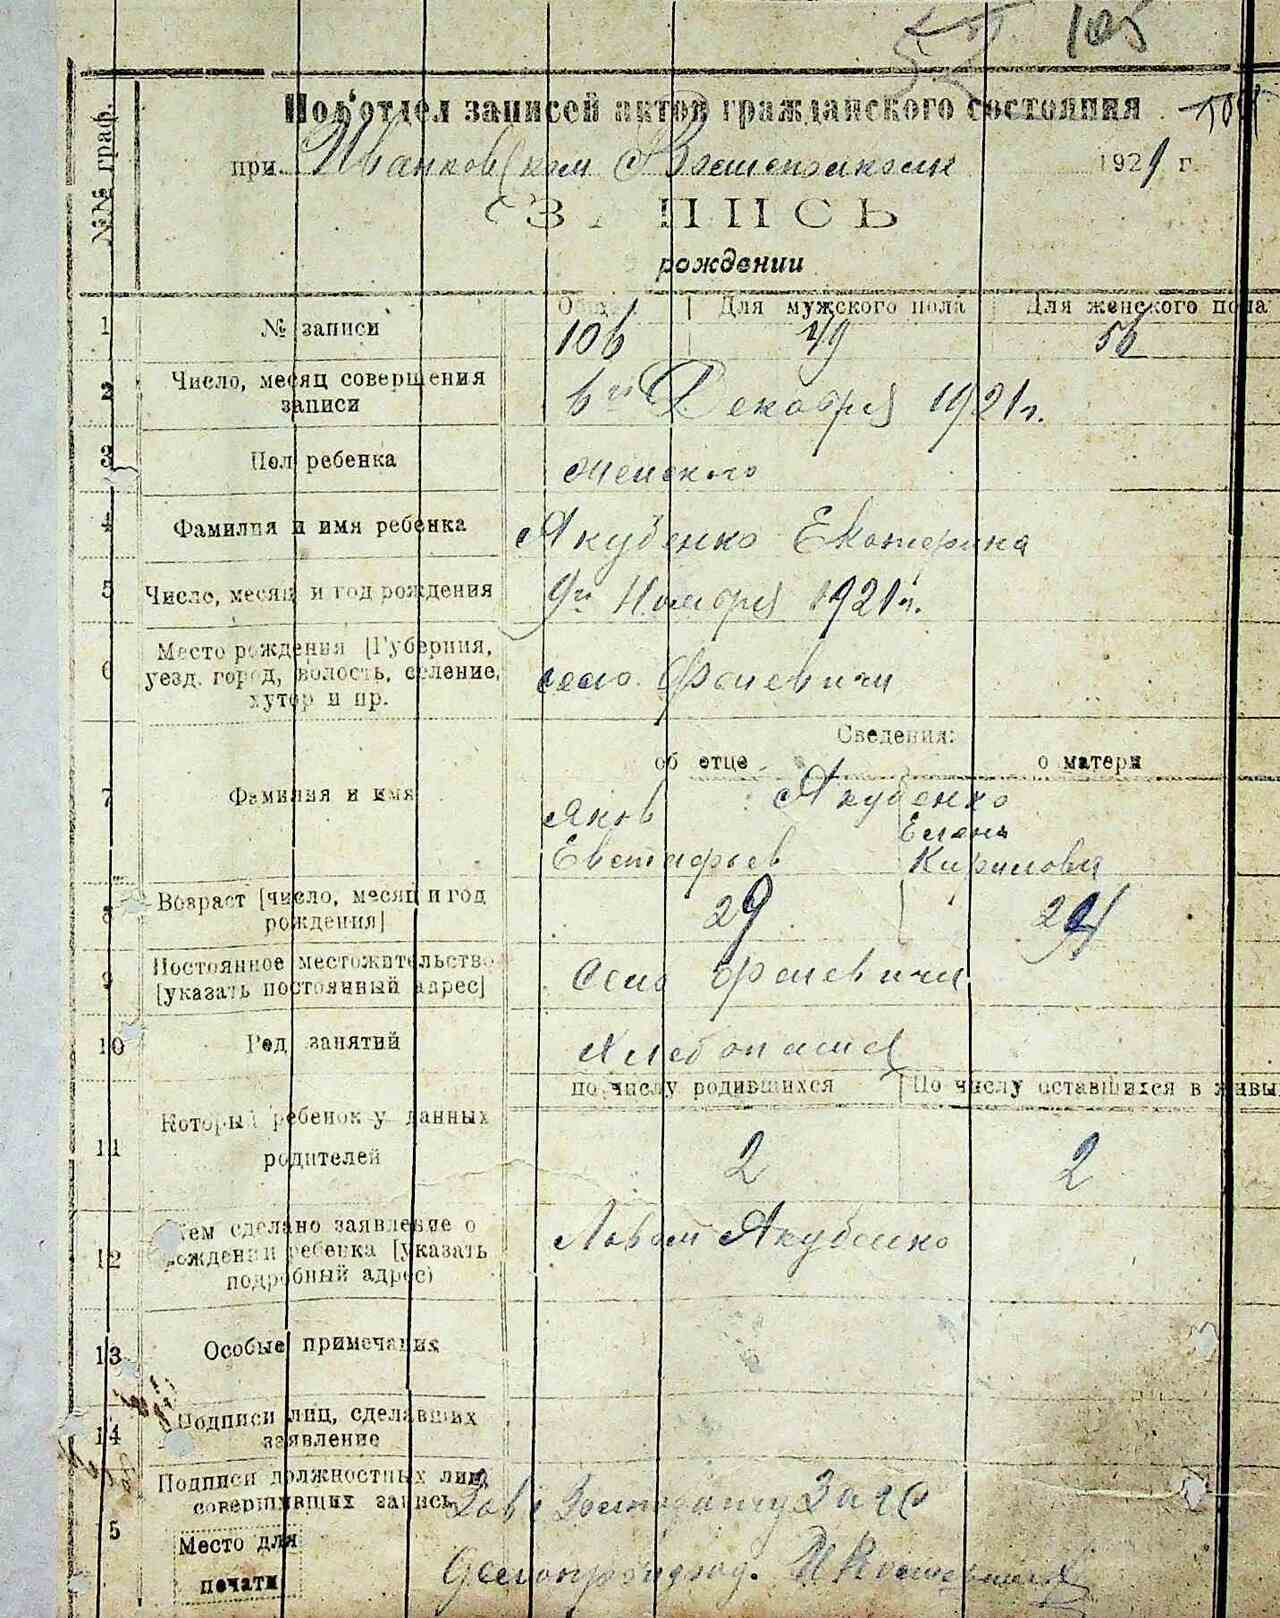 105
Под'отдел записей актов гражданского состояния
при Иванковском 1921 г.
№№ граф.
ЗАПИСЬ
рождении
Общ. Для мужского пола Для женского пола
1 № записи 106 49 56
2 Число, месяц совершения
записи 6го Декабря 1921 г.
3 Пол ребенка женского
4 Фамилия и имя ребенка Якубенко Екатерина
5 Число, месяц и год рождения 9го Ноября 1921 г.
6 Место рождения [Губерния,
уезд. город, волость, селение,
хутор и пр. село Феневичи
Сведения:
об отце о матери
7 Фамилия и имя Якубенко
Яков Елена
Евстафьев Кирилова
8 Возраст [число, месяц и год
рождения] 29 24
9 Постоянное местожительство
[указать постоянный адрес] Село Феневичи
10 Род занятий Хлебопашец
по числу родившихся По числу оставшихся в живы
11 Который ребенок у данных
родителей 2 2
12 Кем сделано заявление о
рождении ребенка [указать
подробный адрес) Якубенко
13 Особые примечания
14 Подписи лиц, сделавших
заявление
Подписи должностных лиц
совершивших запись Зав.
5 Место для
печати